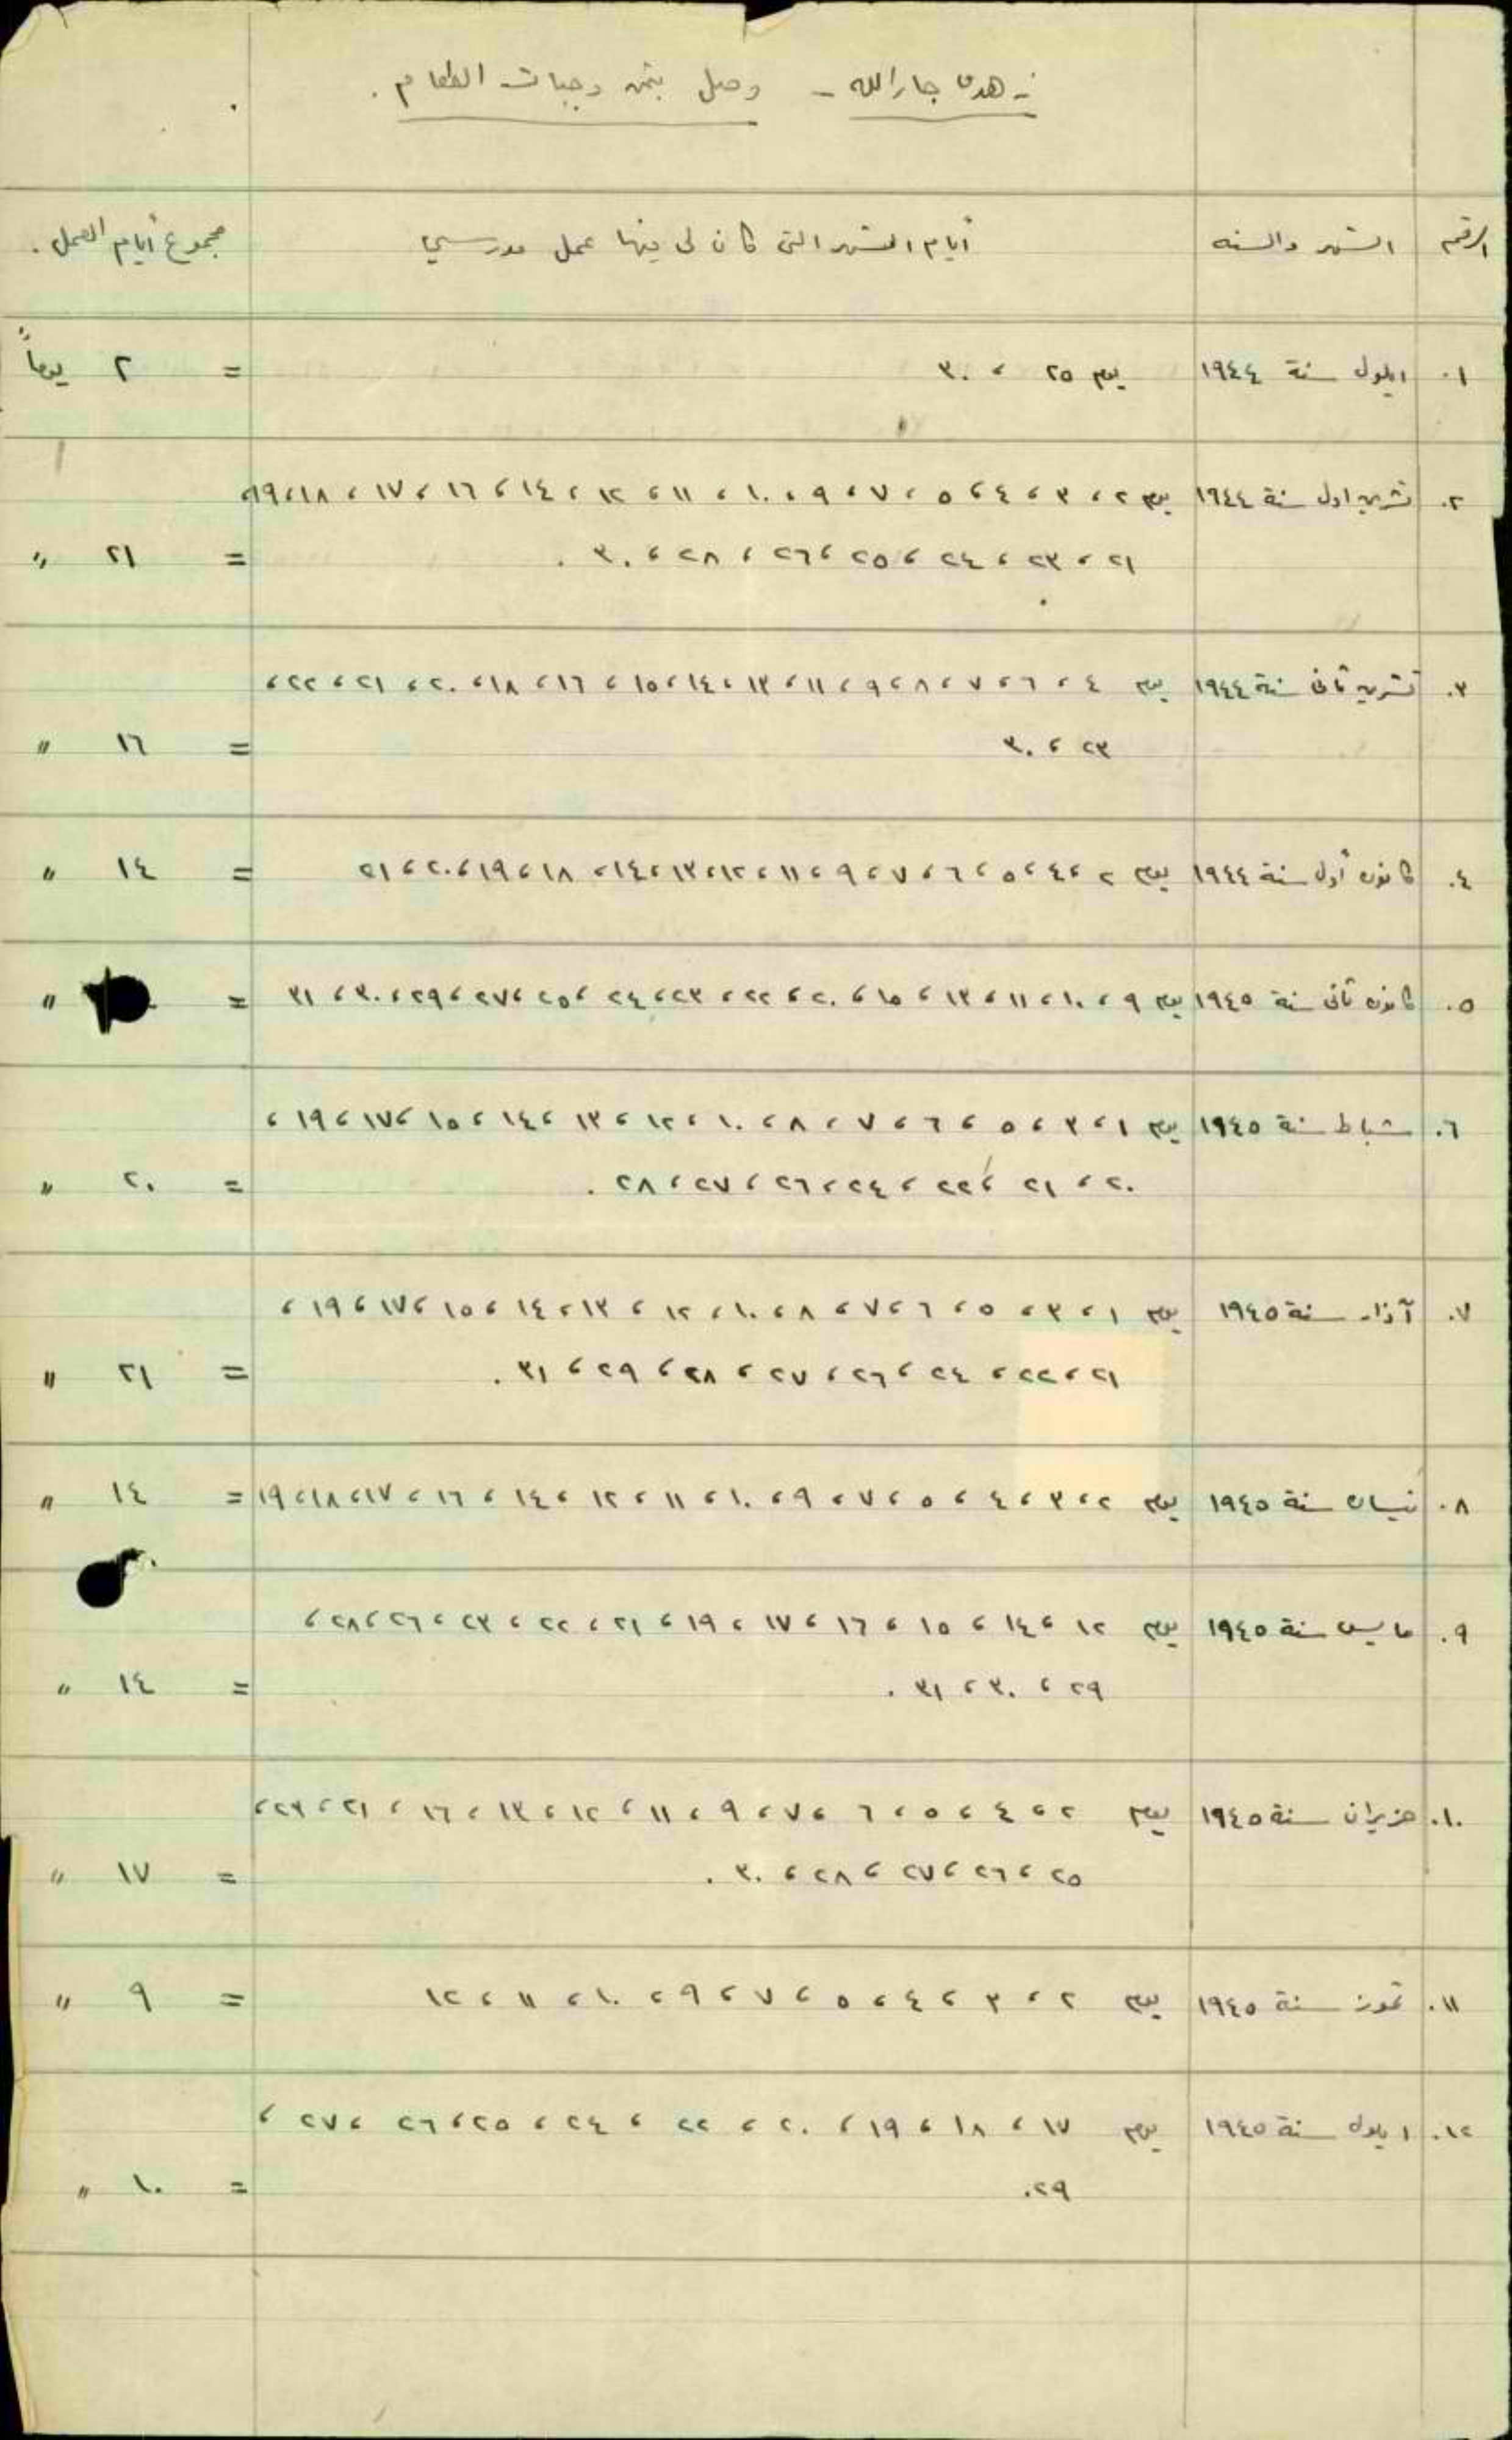 زهدي جارالله - وصل بثمن وجبات الطعام .
الرقم الشهر والسنه أيام الشهر التى كان لى فيها عمل مدرسي مجموع أيام العمل .
١. ايلول سنة ١٩٤٤ يوم ٢٥ ، ٣٠ = ٢ يوماً
٢. تشرين اول سنة ١٩٤٤ يوم ٢ ، ٣ ، ٤ ، ٥ ، ٧ ، ٩ ، ١٠ ، ١١ ، ١٢ ، ١٤ ، ١٦ ، ١٧ ، ١٨ ، ١٩ ،
٢١ ، ٢٣ ، ٢٤ ، ٢٥ ، ٢٦ ، ٢٨ ، ٣٠ . = ٢١ "
٣. تشرين ثانى سنة ١٩٤٤ يوم ٤ ، ٦ ، ٧ ، ٨ ، ٩ ، ١١ ، ١٣ ، ١٤ ، ١٥ ، ١٦ ، ١٨ ، ٢٠ ، ٢١ ، ٢٢ ،
٢٣ ، ٣٠ = ١٦ "
٤. كانون أول سنة ١٩٤٤ يوم ٢ ، ٤ ، ٥ ، ٦ ، ٧ ، ٩ ، ١١ ، ١٢ ، ١٣ ، ١٤ ، ١٨ ، ١٩ ، ٢٠ ، ٢١ = ١٤ "
٥. كانون ثانى سنة ١٩٤٥ يوم ٩ ، ١٠ ، ١١ ، ١٣ ، ١٥ ، ٢٠ ، ٢٢ ، ٢٣ ، ٢٤ ، ٢٥ ، ٢٧ ، ٢٩ ، ٣٠ ، ٣١ = "
٦. شباط سنة ١٩٤٥ يوم ١ ، ٣ ، ٥ ، ٦ ، ٧ ، ٨ ، ١٠ ، ١٢ ، ١٣ ، ١٤ ، ١٥ ، ١٧ ، ١٩ ،
٢٠ ، ٢١ ، ٢٢ ، ٢٤ ، ٢٦ ، ٢٧ ، ٢٨ . = ٢٠ "
٧. آذار سنة ١٩٤٥ يوم ١ ، ٣ ، ٥ ، ٦ ، ٧ ، ٨ ، ١٠ ، ١٢ ، ١٣ ، ١٤ ، ١٥ ، ١٧ ، ١٩ ،
٢١ ، ٢٢ ، ٢٤ ، ٢٦ ، ٢٧ ، ٢٨ ، ٢٩ ، ٣١ . = ٢١ "
٨. نيسان سنة ١٩٤٥ يوم ٢ ، ٣ ، ٤ ، ٥ ، ٧ ، ٩ ، ١٠ ، ١١ ، ١٢ ، ١٤ ، ١٦ ، ١٧ ، ١٨ ، ١٩ = ١٤ "
٩. مايس سنة ١٩٤٥ يوم ١٢ ، ١٤ ، ١٥ ، ١٦ ، ١٧ ، ١٩ ، ٢١ ، ٢٢ ، ٢٣ ، ٢٦ ، ٢٨ ،
٢٩ ، ٣٠ ، ٣١ . = ١٤ "
١٠. حزيران سنة ١٩٤٥ يوم ٢ ، ٤ ، ٥ ، ٦ ، ٧ ، ٩ ، ١١ ، ١٢ ، ١٣ ، ١٦ ، ٢١ ، ٢٣ ،
٢٥ ، ٢٦ ، ٢٧ ، ٢٨ ، ٣٠ . = ١٧ "
١١. تموز سنة ١٩٤٥ يوم ٢ ، ٣ ، ٤ ، ٥ ، ٧ ، ٩ ، ١٠ ، ١١ ، ١٢ = ٩ "
١٢. ايلول سنة ١٩٤٥ يوم ١٧ ، ١٨ ، ١٩ ، ٢٠ ، ٢٢ ، ٢٤ ، ٢٥ ، ٢٦ ، ٢٧ ،
٢٩. = ١٠ "